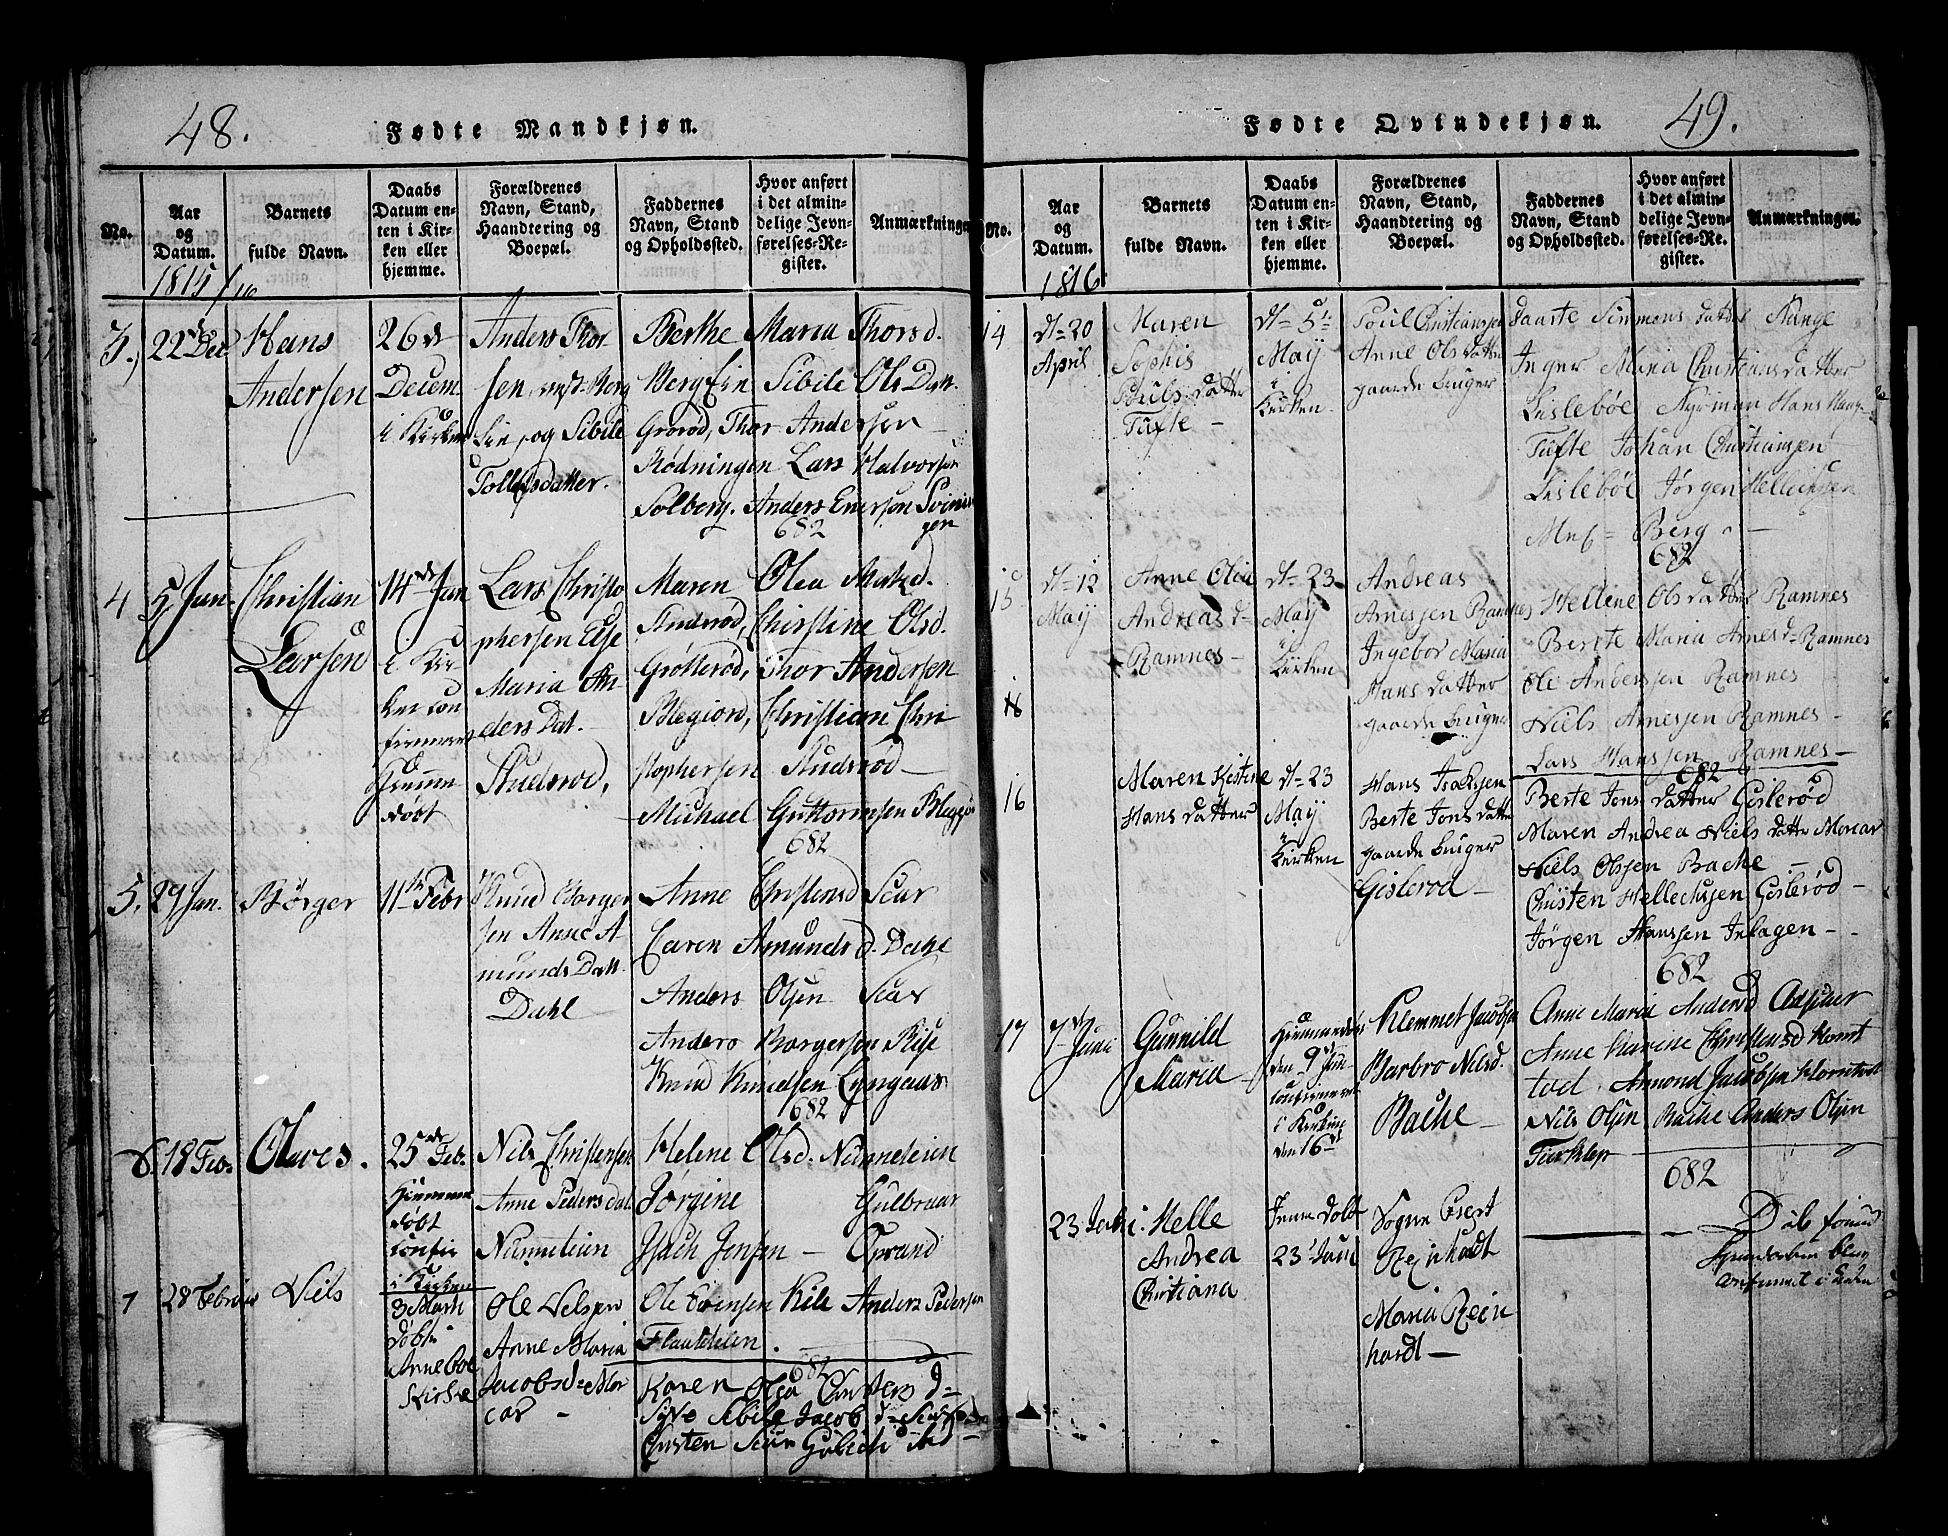 48.
Fødte Mandkjøn.
No.
Aar og Datum.
Barnets fulde Navn.
Daabs Datum enten i Kirken eller hjemme.
Forældrenes Navn, Stand, Haandtering og Boepæl.
Faddernes Navn, Stand og Opholdssted.
Hvor anført i det almindelige Jevnførelses-Register.
Anmærkninger
1815/16
3.
22de Dec
Hans
Andersen
26de
Decem
i Kirken
Anders Thor
sen
og Sibile
Tollefsdatter.
Berthe Maria Thorsd.
Berg Ein Sibile Ols Datt.
Grorød, Thor Andersen
Rødningen Lars Halvorsen
Solberg. Anders Enersen
682
4
5 Jan.
Christian
Larsen
14de Jan
i Kir
ken con
firmeres
Hiemme
døbt
Lars Christo
phersen Else
Maria An
ders Dat.
Studsrød,
Maren Olea Matsd.
Studsrød, Christine Olsd.
Grøtterød, Thor Andersen
Christian Chri
stophersen Studsrød
Michael Guttormsen
682
5.
29 Jan.
Børger
11te Febr
Knud Borger
sen Anne A
munds Datt.
Dahl
Anne Christensd Scar
Caren Amunds d. Dahl
Anders Olsen Scar
Anders Borgersen
Knud Knudsen Lyngaas
682
6.
18 Feb.
Olaves.
25de Feb.
Hiemme
døbt
confir
i Kirken
Nils Christensen
Anne Peders dat
Nunneteien
Helene Olsd. Nunneteien
Jørgine Gulbraar
Isach Jensen
7
28 Februar
Nils
3 Marti
døbt i
Kirke
Ole Nelssen
Anne Maria
Jacobsd
Ole Evensen Kile Anders Pedersen
682
Karen Olea
Sibile Jacob d
Christen
49.
Fødte Qvindekjøn.
No.
Aar og Datum.
Barnets fulde Navn.
Daabs Datum enten i Kirken eller hjemme.
Forældrenes Navn, Stand, Haandtering og Boepæl.
Faddernes Navn, Stand og Opholdssted.
Hvor anført i det almindelige Jevnførelses-Register.
Anmærkninger.
1816
14
d= 20
April
Maren
Sophie
Pouls datter
Tufte
d= 5te
May
i
Kirken
Poul Christiansen
Anne Olsdatter
gaardbruger
Simmons datter
Inger Maria Christians datter
Lislebøe
Tufte Johan Christiansen
Lislebøe Jørgen Hellichsen
Berg
682
15
d= 12
May
Anne Olea
Andreas d=
Ramnes
d= 23
May
i
Kirken
Andreas
Arnessen Ramnes
Ingebor Maria
Hans datter
gaardbruger
Hellene Ols datter Ramnes
Berte Maria Arnes d= Ramnes
Ole Anderssen Ramnes
Niels Arnessen Ramnes
Lars Hanssen Ramnes
682
16
Maren Kistine
Hans datter
d= 23
May
i
Kirken
Hans Isachsen
Berte Jons datter
gaardbruger
Gislerød
Berte Jons datter Gislerød
Maren Andrea Niels datter
Niels Olssen Bache
Christen Hellechsen Gislerød
Jørgen Hanssen
682
17
7de
Juni
Gunnild
Maria
Hiemmedøbt
den 9de Juni
confirmeret
i Kirken
den 16de
Klemmet Jacobsen
Barbro Nilsd.
Bache
Anne Maria Andersd
Anne Karine Christensd
Amond Jacobsen
Nils Olsen Bache Anders Olsen
682
Helle
Andrea
Christiana
Sogne Præst
Reinhardt
Maria Rein
hardt